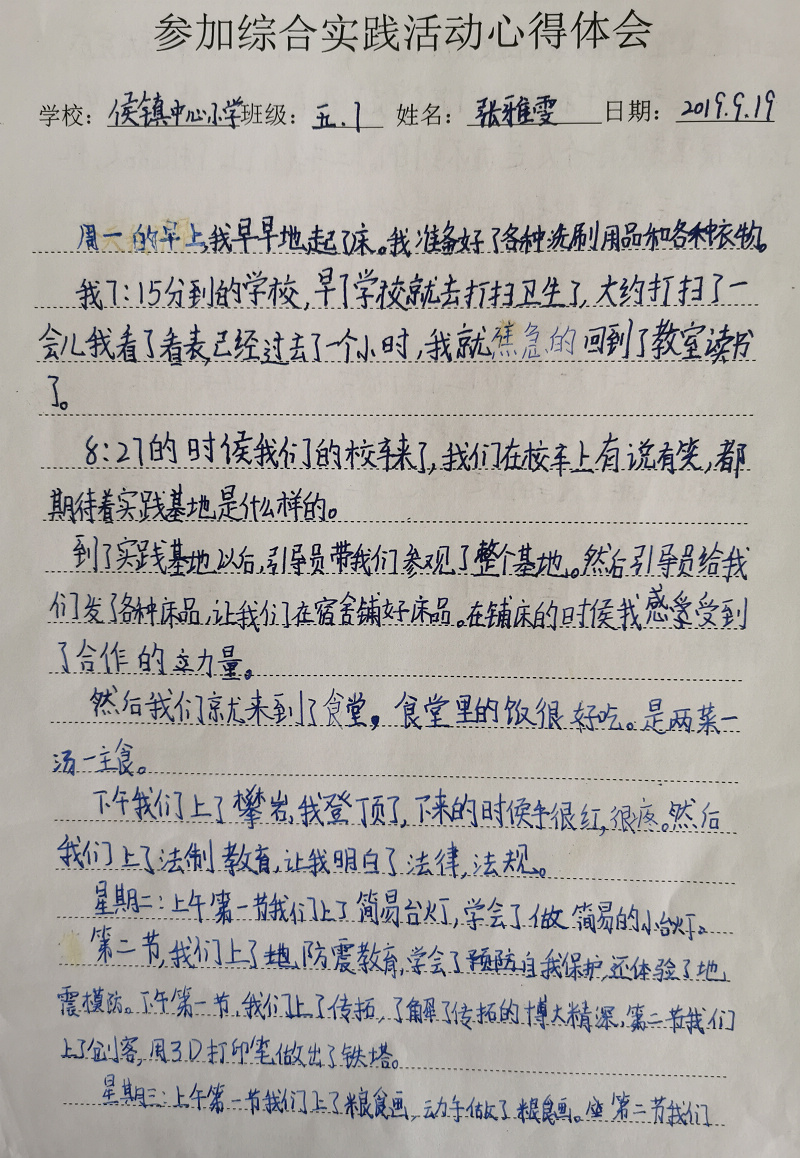 参加综合实践活动心得体会
学校：侯镇中心小学班级：五.1 姓名：张雅雯 日期：2019.9.19
周一的早上，我早早地起了床。我准备好了各种洗刷用品和各种衣物。
我7:15分到的学校，早了学校就去打扫卫生了，大约打扫了一
会儿我看了看表，已经过去了一个小时，我就焦急的回到了教室读书
了。
8:27的时侯我们的校车来了，我们在校车上有说有笑，都
期待着实践基地是什么样的。
到了实践基地以后，引导员带我们参观了整个基地。然后引导员给我
们发了各种床品，让我们在宿舍铺好床品。在铺床的时侯我感受受到
了合作的力量。
然后我们就来到了食堂，食堂里的饭很好吃。是两菜一
汤一主食。
下午我们上了攀岩，我登顶了，下来的时侯手很红，很疼。然后
我们上了法制教育，让我明白了法律，法规。
星期二：上午第一节我们上了简易台灯，学会了做简易的小台灯。
第二节，我们上了地防震教育，学会了预防自我保护，还体验了地
震模防。下午第一节，我们上了传拓，了解了传拓的博大精深，第二节我们
上了创客，用3D打印笔做出了铁塔。
星期三：上午第一节我们上了粮食画，动手做了粮食画。第二节我们